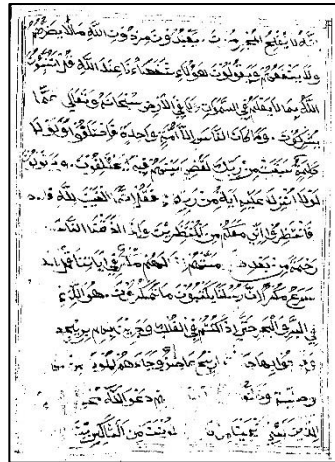 انه لا يفلح المجرمون ويعبدون من دون الله ما لا يضرهم
ولا ينفعهم ويقولون هؤلاء شفعاؤنا عند الله قل اتنبئون
الله بما لا يعلم في السموات ولا في الارض سبحانه وتعالى عما
يشركون وما كان الناس الا امة واحدة فاختلفوا ولولا
كلمة سبقت من ربك لقضي بينهم فيه يختلفون ويقولون
لولا انزل عليه اية من ربه فقل انما الغيب لله
فانتظروا اني معكم من المنتظرين واذا اذقنا الناس
رحمة من بعد مستهم لهم مكر في اياتنا قل الله
اسرع مكرا ان رسلنا يكتبون ما تمكرون هو الذي
في البر والبحر حتى اذا كنتم في الفلك وجرين بهم بريح
وفرحوا بها ريح عاصف وجاءهم الموج من
دعوا الله
من لنكونن من الشاكرين